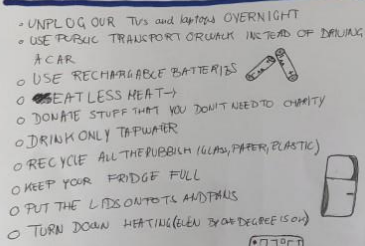 • UNPLOG OUR TVs and laptops OVERNIGHT
• USE PUBLIC TRANSPORT OR WALK INSTEAD OF DRIVING
A CAR
o USE RECHARGABLE BATTERIES
o EAT LESS MEAT→
o DONATE STUFF THAT YOU DON'T NEED TO CHARITY
o DRINK ONLY TAPWATER
o RECYCLE ALL THE RUBBISH (GLASS, PAPER, PLASTIC)
o KEEP YOUR FRIDGE FULL
o PUT THE LIDS ONTO POTS AND PANS
o TURN DOWN HEATING (EVEN BY ONE DEGREE IS OK)